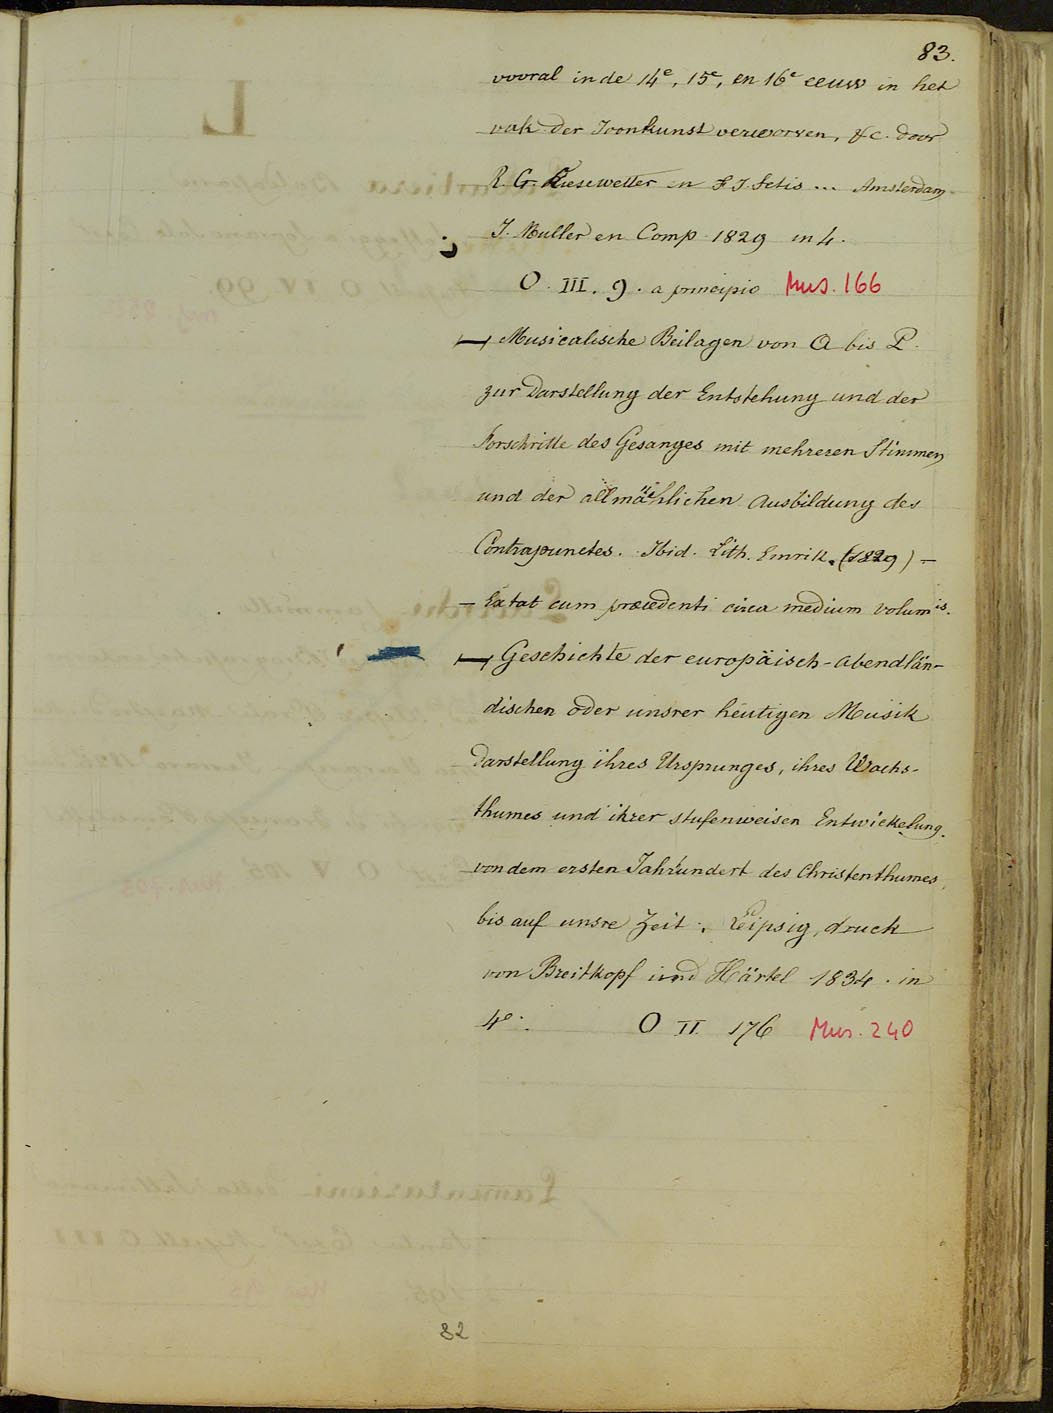 83.
vooral in de 14e, 15e, en 16e eeuw in het
vak der Toonkunst verworven, &c. door
R. G. Kiesewetter en F. J. Fetis ... Amsterdam
J. Muller en Comp. 1829 in 4.
O. III. 9. a principio Mus. 166
— Musicalische Beilagen von A bis P.
zur Darstellung der Entstehung und der
Forschritte des Gesanges mit mehreren Stimmen
und der allmählichen Ausbildung des
Contrapunctes. Ibid. Lith. Emrik. (1829) —
— Extat cum præcedenti circa medium volumis.
— Geschichte der europäisch-abendlän-
dischen oder unsrer heutigen Musik
Darstellung ihres Ursprunges, ihres Wachs-
thumes und ihrer stufenweisen Entwickelung.
von dem ersten Jahrundert des Christenthumes
bis auf unsre Zeit. Leipsig, druck
von Breitkopf und Härtel 1834. in
4o. O II 176 Mus. 240
82